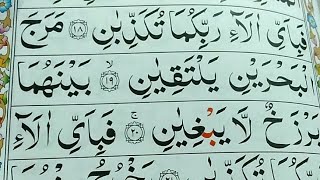 فَبِاَىِّ اٰلَآءِ رَبِّكُمَا تُكَذِّبٰنِ ﴿۱۸﴾ مَرَجَ
لْبَحْرَيْنِ يَلْتَقِيٰنِ ﴿۱۹﴾ بَيْنَهُمَا
بَرْزَخٌ لَّا يَبْغِيٰنِ ﴿۲۰﴾ فَبِاَىِّ اٰلَآءِ